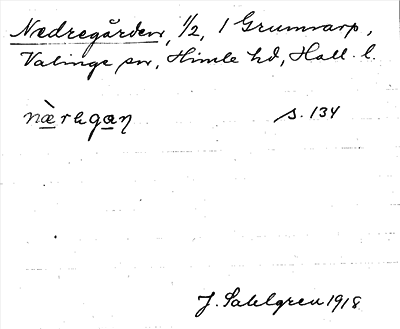 Nedregården, 1/2, 1 Grumvarp,
Valinge sn, Himle hd, Hall. l.
næ̀rəgan s. 134
J. Sahlgren 1918